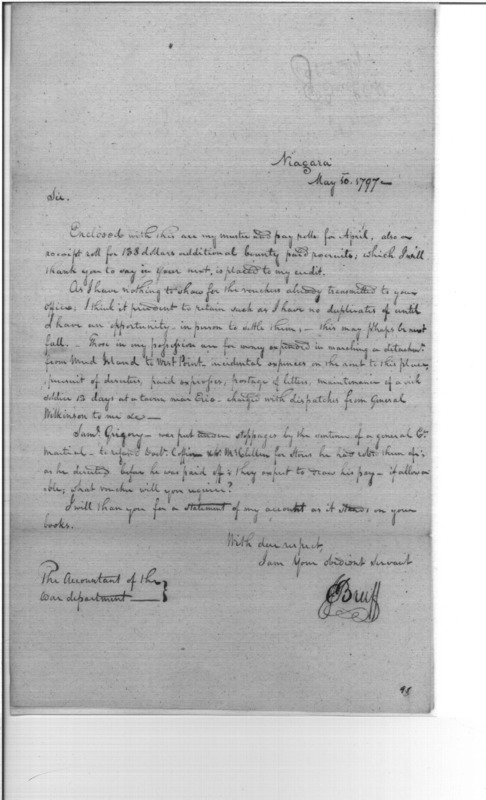 Niagara
May 30. 1797
Sir.
Enclosed with this are my muster and pay rolls for April, also a
receipt roll for 138 dollars additional bounty paid recruits; which I will
thank you to say in your next, is placed to my credit.
As I have nothing to show for the vouchers already transmitted to your
office; I think it prudent to retain such as I have no duplicates of until
I have an opportunity in person to settle them, - this may perhaps be not
full. - Those in my possession are for money expended in marching a detachmt.
from Mud Island to West Point, incidental expences on the rout to this place,
pursuit of deserters, paid expresses, postage of letters, maintenance of a sick
soldier 13 days at a tavern near Erie - charged with dispatches from General
Wilkinson to me &c -
Saml. Grigory - was put under stoppages by the sentence of a general Ct.
Martial - to Doctr. Coffin & Mr. McClellen for Stores he had them of;
as he deserted before he was paid off & they expect to draw his pay - if allowa
ble; what voucher will you require?
I will than you for a statement of my account as it stands on your
books.
With due respect
I am Your obedient Servant
The Accountant of the
War department
Bruff